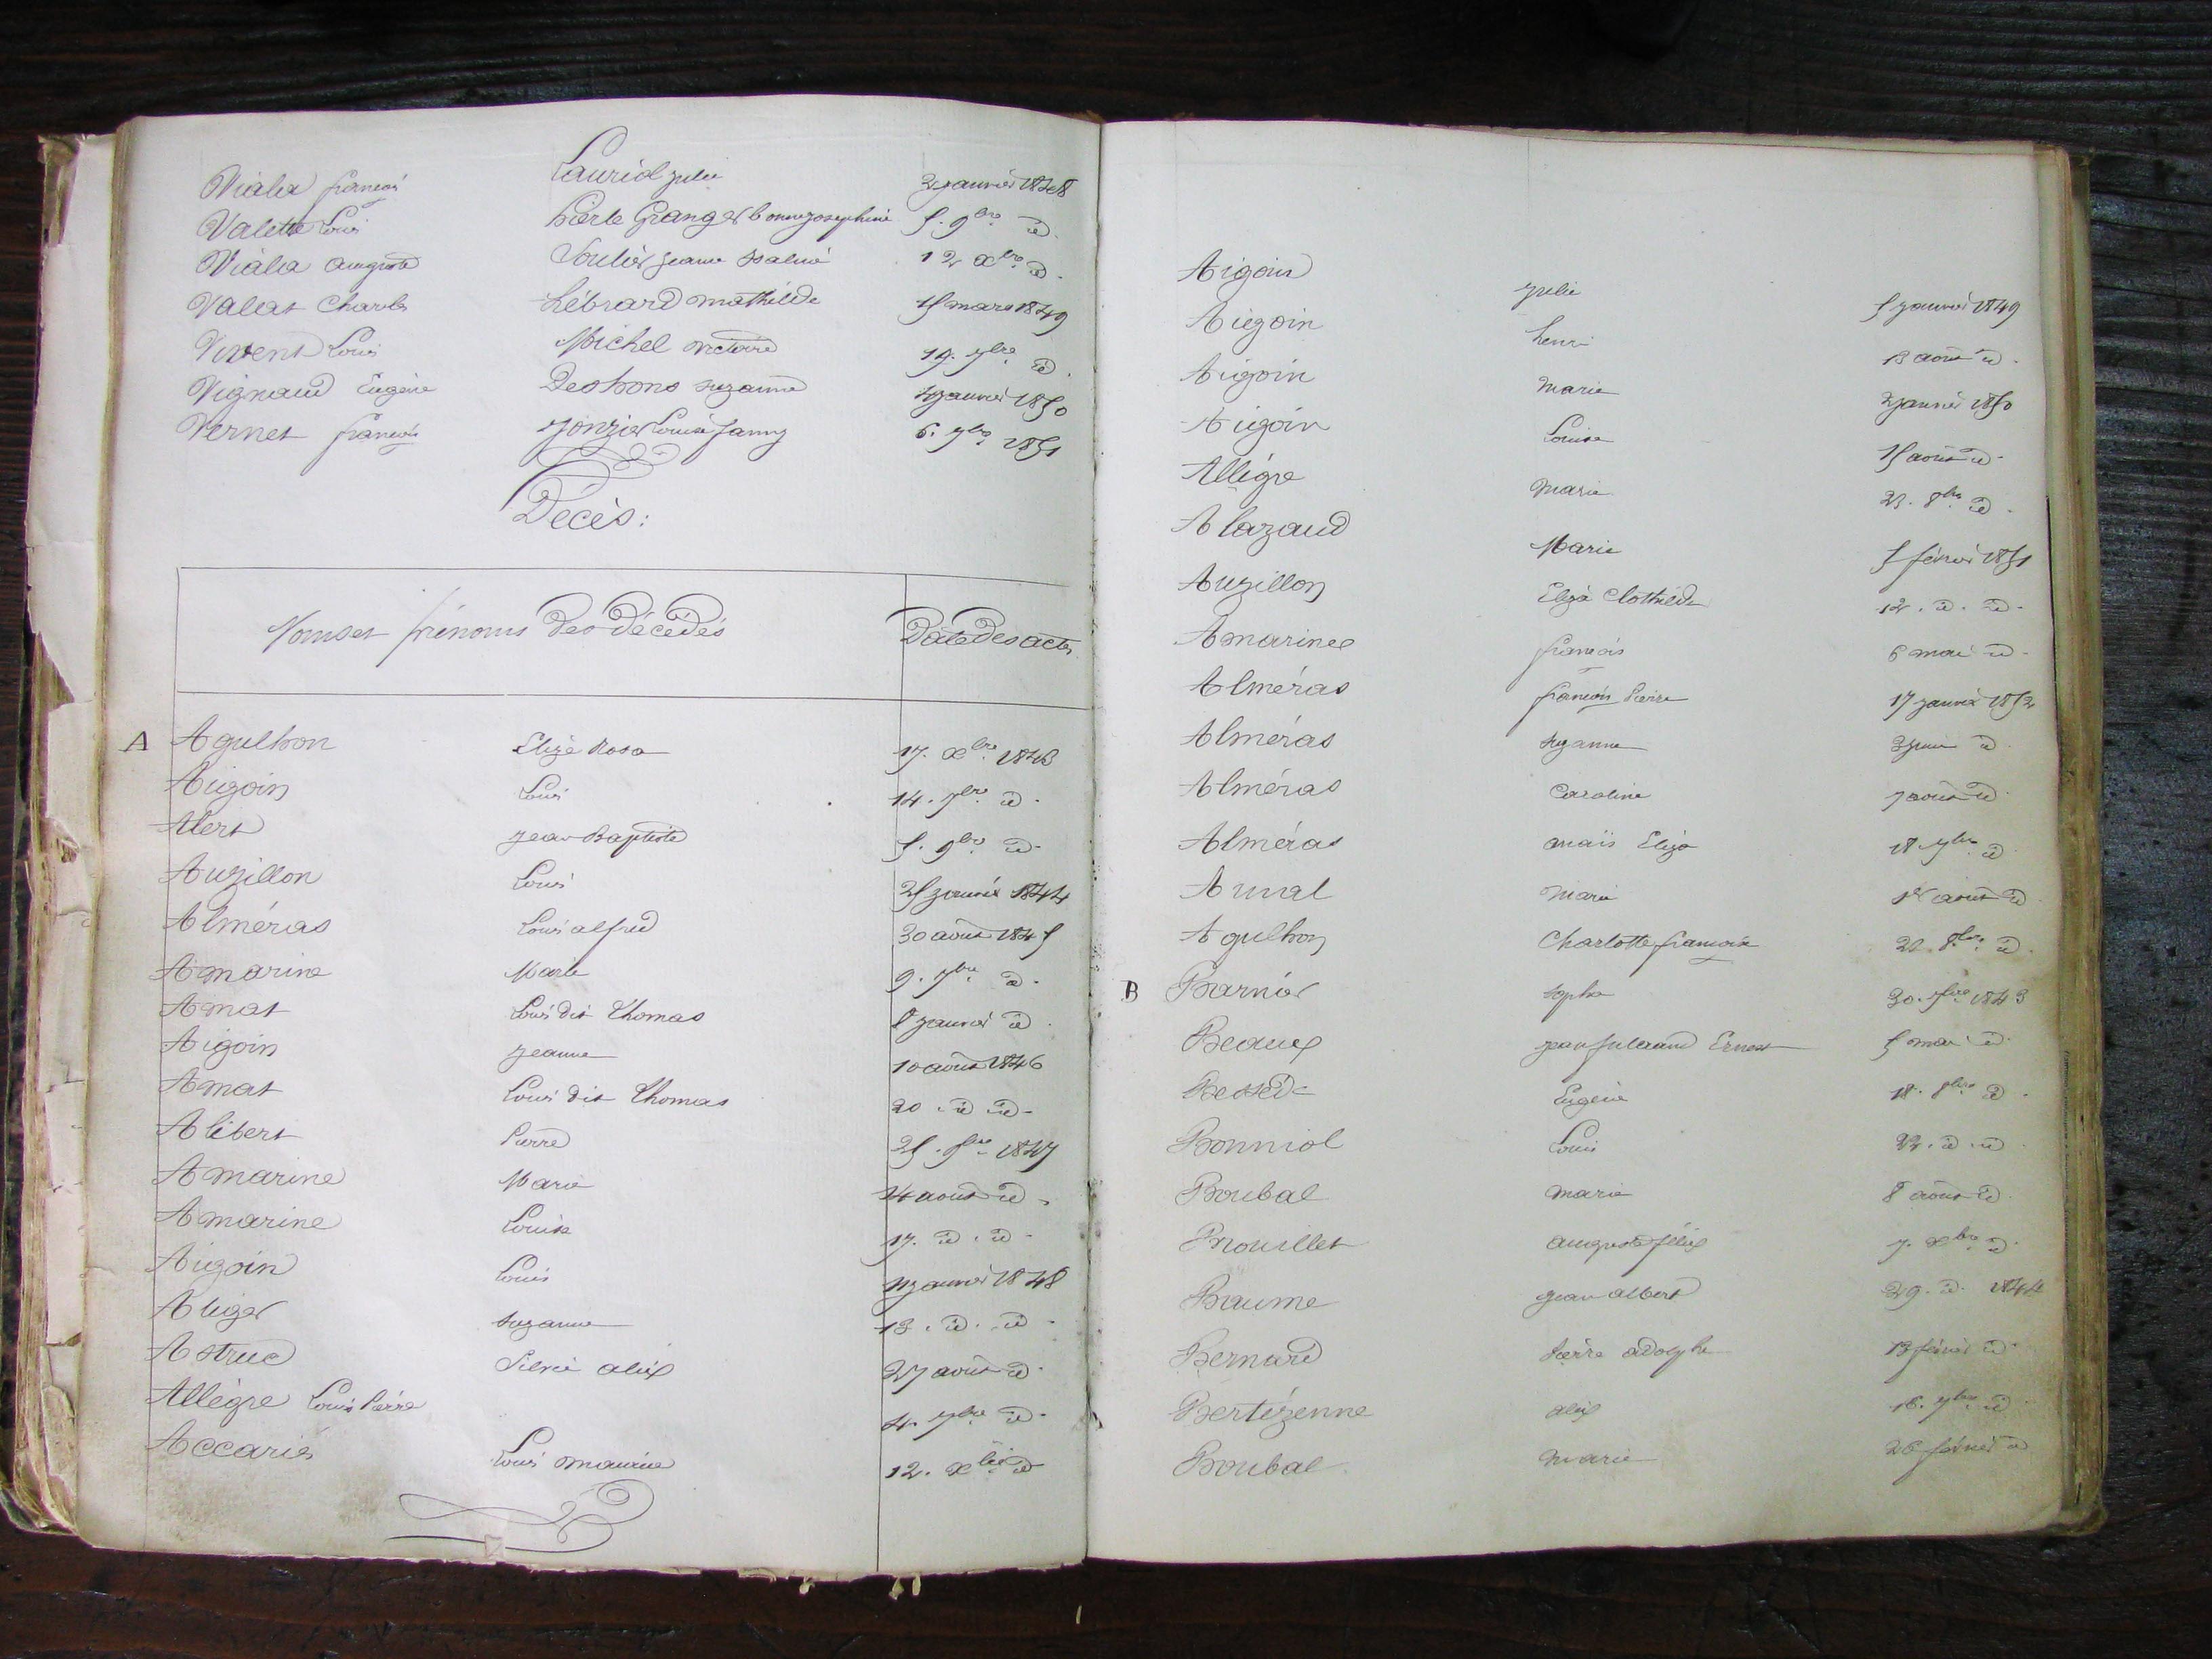 Viala françois Lauriol julie 2 janvier 1848
Valette Louis Perle Granger bonne josephine 5. 9bre id.
Viala auguste Soulier jeanne 12 Xbre id.
Valat Charles hébrard mathilde 15 mars 1849
Vivent Louis Michel victoire 19. 7bre id.
Vignaud Eugène Deshons suzanne 4 janvier 1850
Vernet françois jonzier Louise fanny 6. 7bre 1851
Décès:
Noms et prénoms des décédés Date des actes
A Agulhon Elize Rosa 17. Xbre 1843
Aigoin Louis 14. 7bre id.
Alert jean Baptiste 5. 9bre id.
Auzillon Louis 25 janvier 1844
Alméras Louis alfred 30 aout 1845
Amarine Marie 9. 7bre id.
Amat Louis dit Thomas 8 janvier id.
Aigoin jeanne 10 aout 1846
Amat Louis dit Thomas 20. id id.
Alibert Pierre 25. 9bre 1847
Amarine Marie 14 aout id.
Amarine Louise 17. id. id.
Aigoin Louis 11 janvier 1848
Auger suzanne 13. id. id.
Astruc Silvie alix 27 aout id.
Allègre Louis Pierre 4. 7bre id.
Accariés Louis maurice 12. Xbre id
Aigoin julie 5 janvier 1849
Aigoin henri 13 aout id.
Aigoin marie 2 janvier 1850
Aigoin Louise 15 aout id.
Allègre marie 23. 8bre id.
Alazaud Marie 5 février 1851
Auzillon Eliza Clothilde 12. id. id.
Amarines françois 6 mai id.
Alméras françois Pierre 17 janvier 1852
Alméras suzanne 3 juin id.
Alméras Caroline 7 aout id.
Alméras anaïs Eliza 18. 7bre id.
Arnal marie 18 aout id.
Agulhon Charlotte françoise 21. 8bre id.
B Barnier sophie 30. 7bre 1843
Beaux jean fulcrand Ernest 5 mai id.
Bessède Eugénie 18. 8bre id.
Bonniol Louis 22. id. id
Boubal marie 8 aout id.
Brouillet auguste félix 7. Xbre id.
Baume jean albert 29. id. 1844
Bernard Pierre adolphe 13 février id.
Bertézenne alix 16. 7bre id.
Boubal marie 26 février id